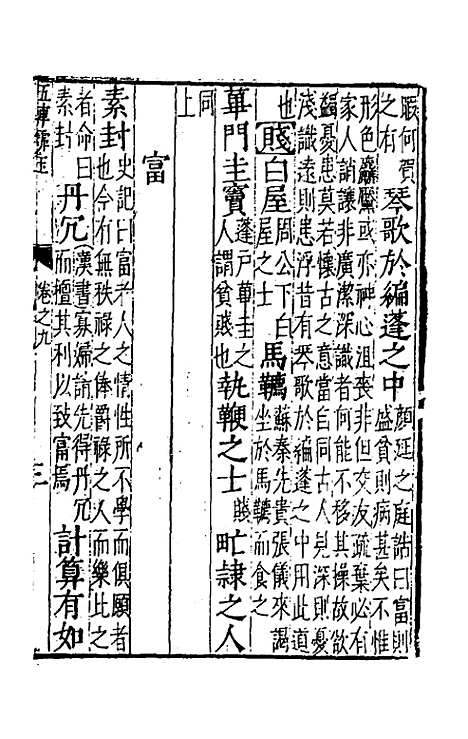 賑何賀
之有 琴歌於編蓬之中 顏延之庭誥曰富則
盛貧則病甚矣不惟
形色麤黶或亦神心沮喪非但交友疏棄必有
家人誚讓非廣潔深識者何能不移其操故欲
蠲憂患莫若懷古之意當自同古人見深則憂
淺識遠則患浮昔有琴歌於編蓬之中用此道
也 賤 白屋 周公下白
屋之士 馬韉 蘇秦先貴張儀來謁
坐於馬韉而食之
蓽門圭竇 蓬戶蓽圭之
人謂貧賤也 執鞭之士 賤 甿隸之人
同
上
富
素封 史記曰富者人之情性所不學而俱願者
也今有無秩祿之俸爵祿之人而樂此之
者命曰
素封 丹冗 漢書寡婦先得丹冗
而擅其利以致富焉 計算有如
卷之九